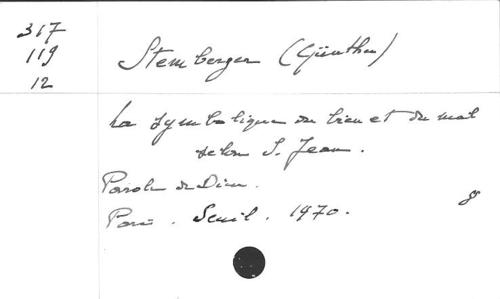 317
119
12
Stemberger (Günther)
La symbolique du bien et du mal
selon S. Jean.
Parole de Dieu.
Paris. Seuil. 1970.
8